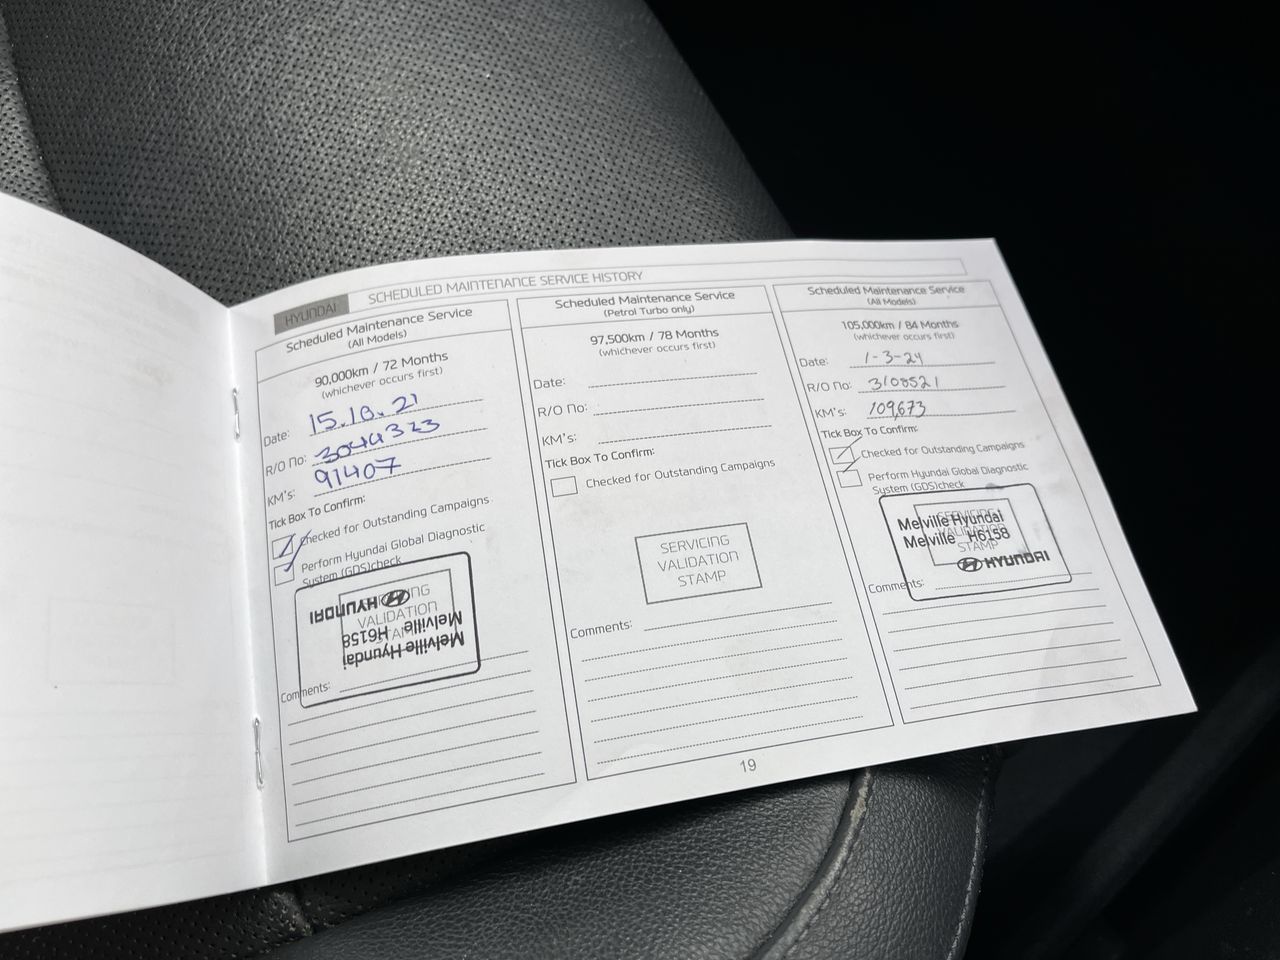 HYUNDAI
SCHEDULED MAINTENANCE SERVICE HISTORY
Scheduled Maintenance Service
(All Models)
90,000km / 72 Months
(whichever occurs first)
Date: 15.10.21
R/O No: 3044323
KM's: 91407
Tick Box To Confirm:
Checked for Outstanding Campaigns
Perform Hyundai Global Diagnostic
System (GDS)check
SERVICING
VALIDATION
STAMP
HYUNDAI
Melville H6158
Melville Hyundai
Comments:
Scheduled Maintenance Service
(Petrol Turbo only)
97,500km / 78 Months
(whichever occurs first)
Date:
R/O No:
KM's:
Tick Box To Confirm:
Checked for Outstanding Campaigns
SERVICING
VALIDATION
STAMP
Comments:
Scheduled Maintenance Service
(All Models)
105,000km / 84 Months
(whichever occurs first)
Date: 1-3-24
R/O No: 3108521
KM's: 109,673
Tick Box To Confirm:
Checked for Outstanding Campaigns
Perform Hyundai Global Diagnostic
System (GDS)check
SERVICING
VALIDATION
STAMP
Melville Hyundai
Melville H6158
HYUNDAI
Comments:
19